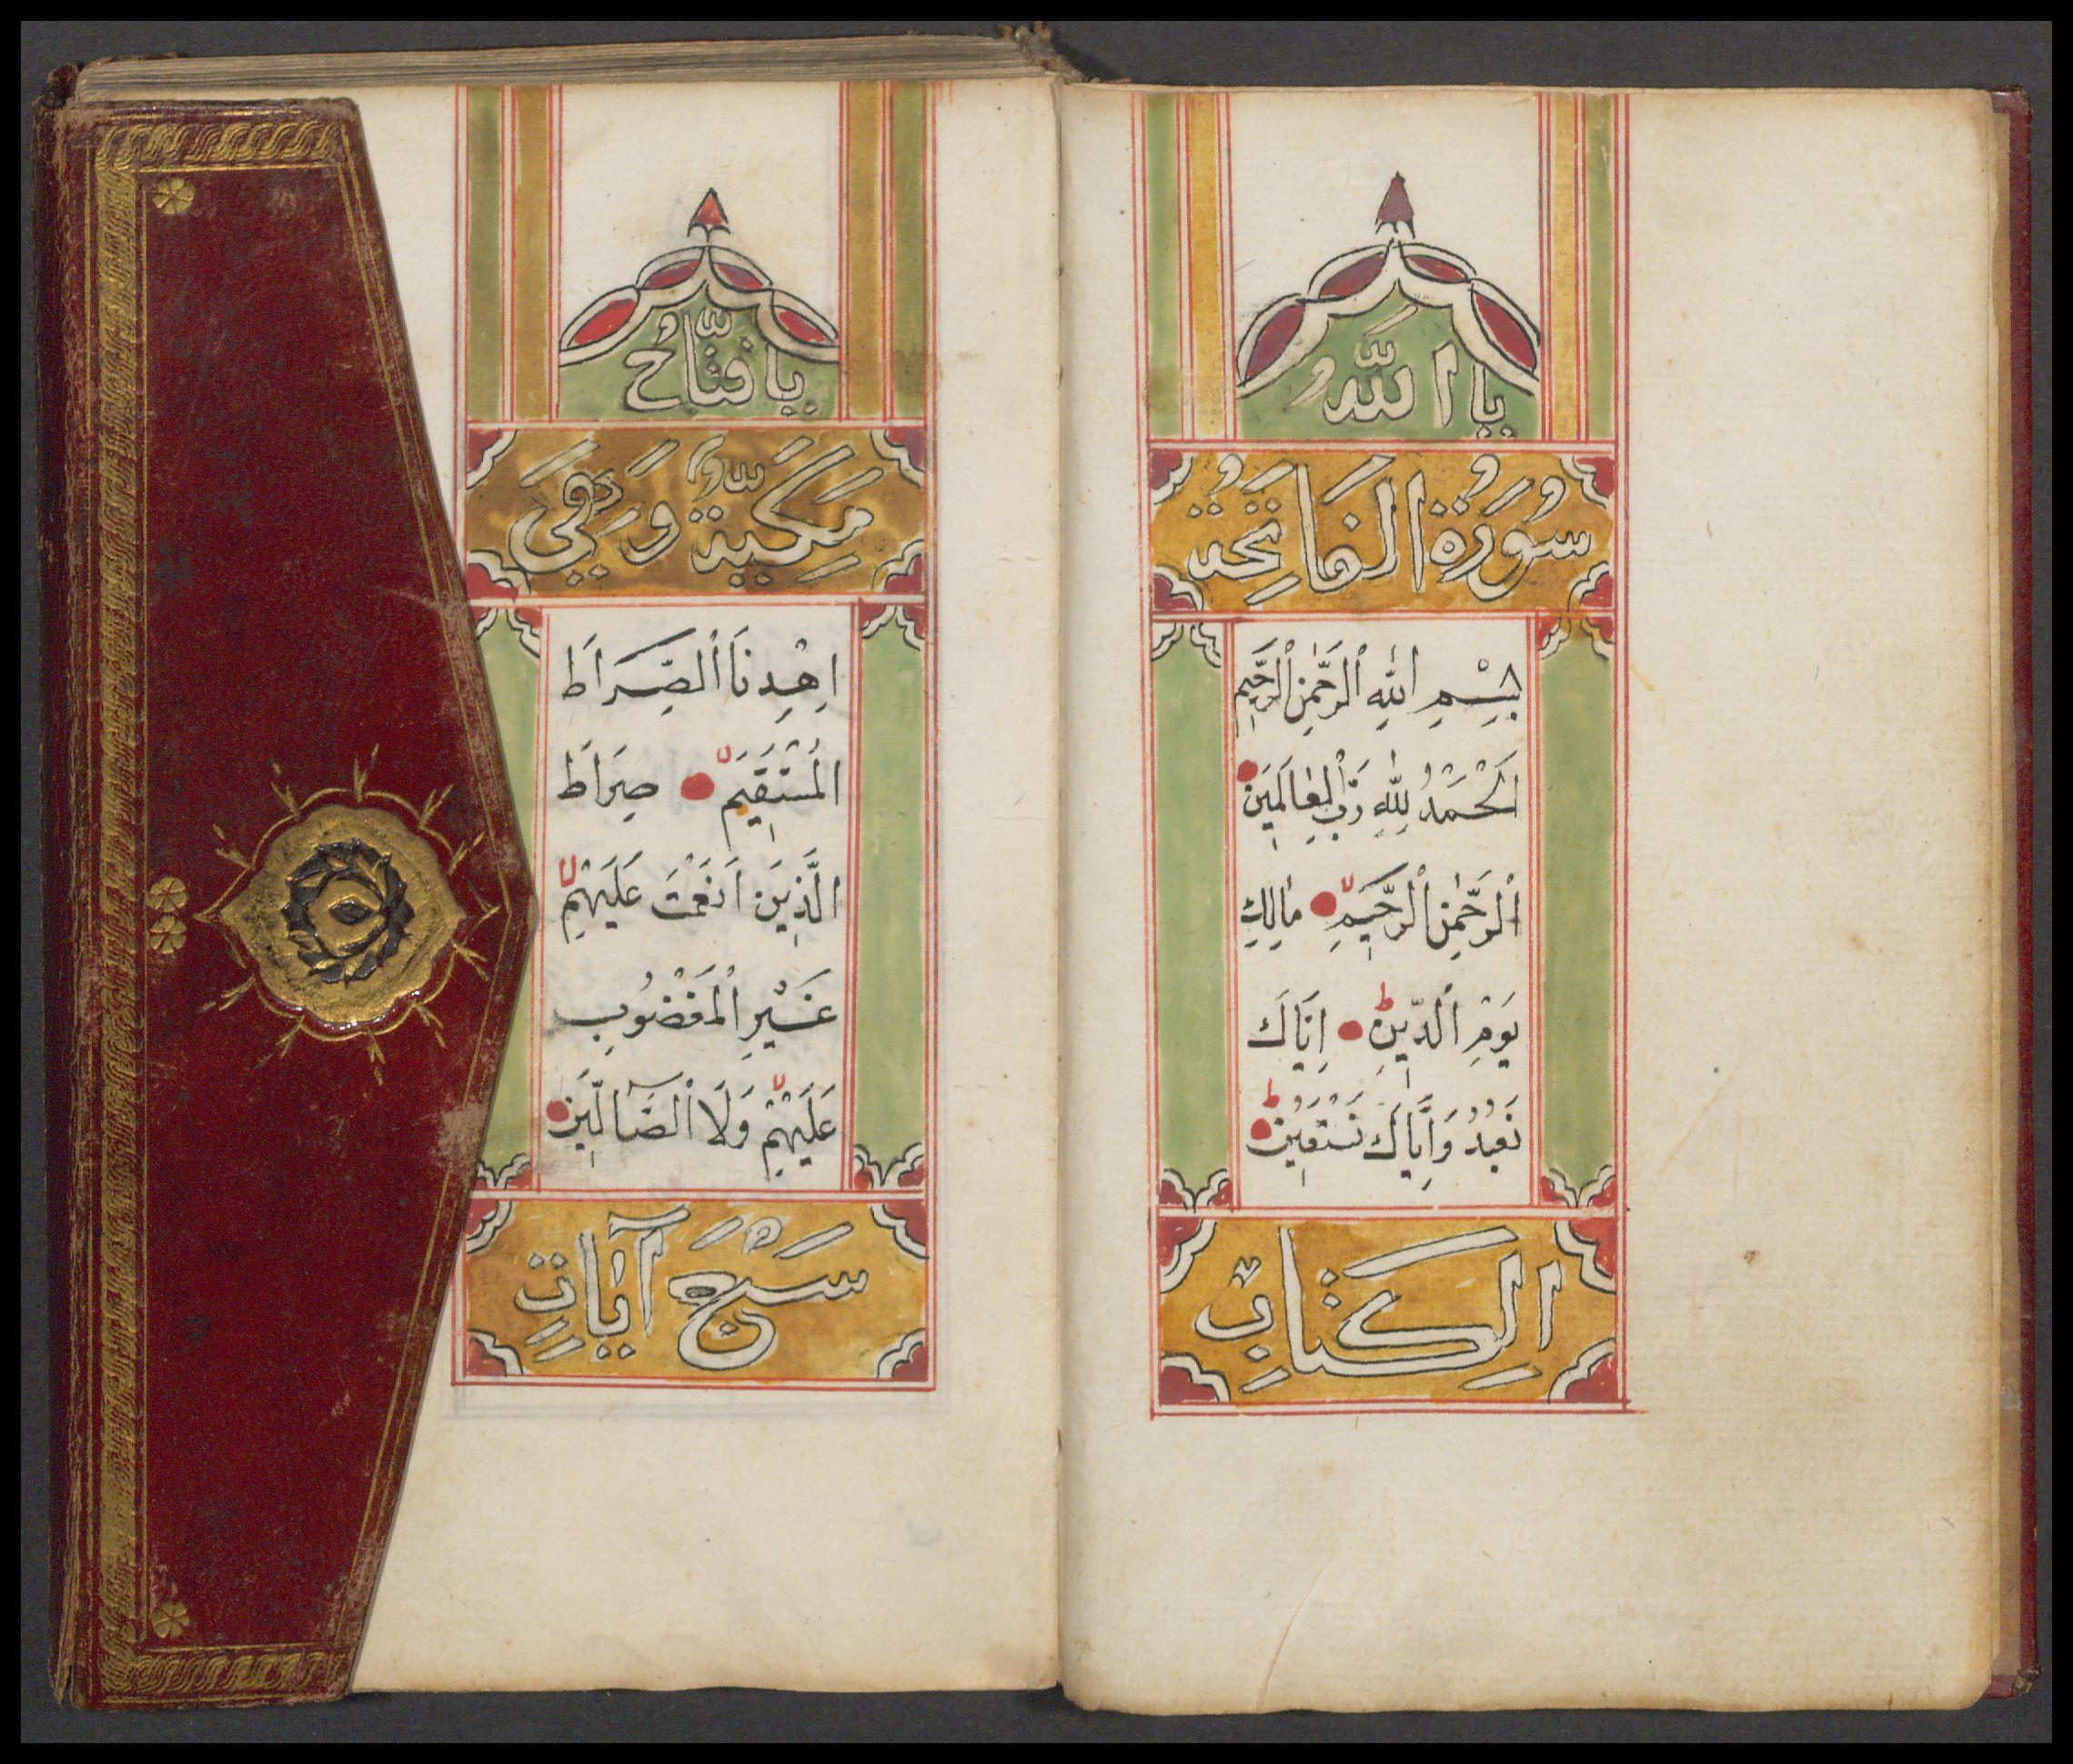 يَا اَللّٰهُ
سُورَةُ الْفَاتِحَةُ
بِسْمِ اللّٰهِ الرَّحْمٰنِ الرَّحِيمِ
اَلْحَمْدُ لِلّٰهِ رَبِّ الْعٰالَمِينَ
اَلرَّحْمٰنِ الرَّحِيمِ مٰالِكِ
يَوْمِ الدِّينِ اِيَّاكَ
نَعْبُدُ وَاِيَّاكَ نَسْتَعِينُ
اَلْكِتَابِ
يَا فَتَّاحُ
مَكِّيَّةٌ وَهِيَ
اِهْدِنَا الصِّرَاطَ
الْمُسْتَقِيمَ صِرَاطَ
الَّذِينَ اَنْعَمْتَ عَلَيْهِمْ
غَيْرِ الْمَغْضُوبِ
عَلَيْهِمْ وَلَا الضَّآلِّينَ
سَبْعَ آيَاتٍ